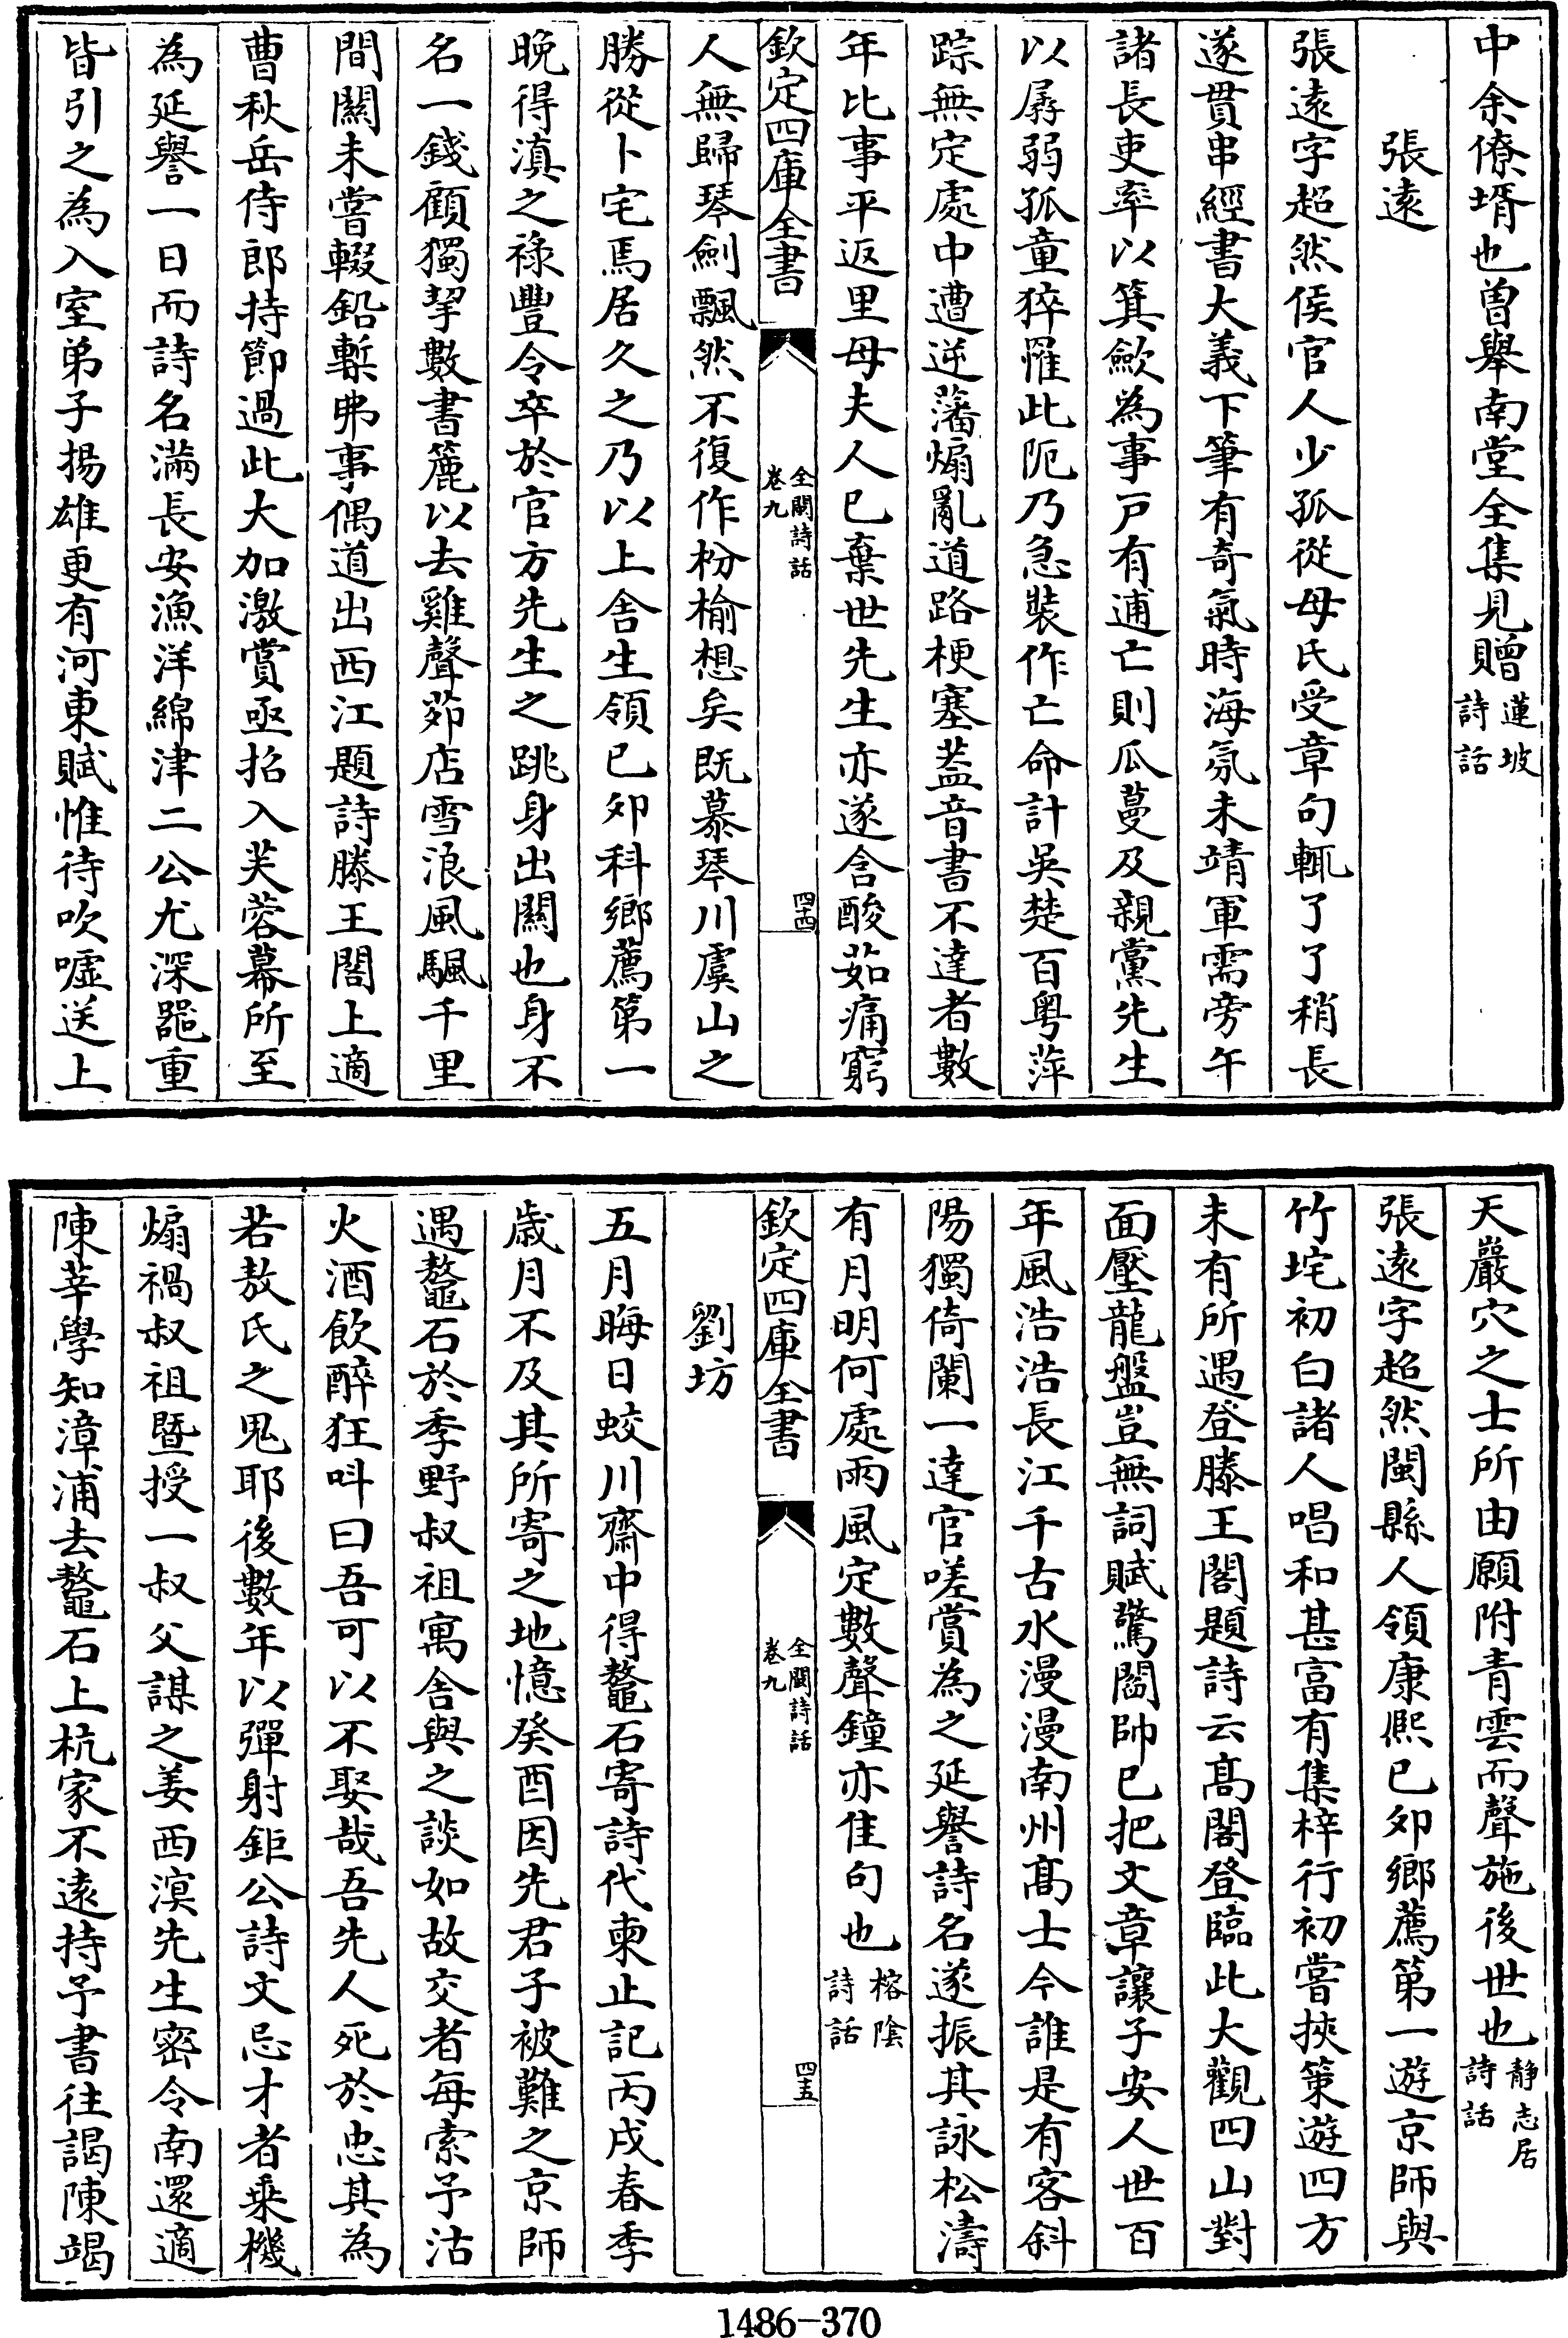 中余僚壻也曽舉南堂全集見贈蓮坡詩話
張遠
張遠字超然侯官人少孤從母氏受章句輒了了稍長
遂貫串經書大義下筆有奇氣時海氛未靖軍需旁午
諸長吏率以箕歛為事戸有逋亡則瓜蔓及親黨先生
以孱弱孤童猝罹此阨乃急裝作亡命計吳楚百粤萍
踪無定處中遭逆藩煽亂道路梗塞葢音書不達者數
年比事平返里母夫人已棄世先生亦遂含酸茹痛窮
欽定四庫全書
全閩詩話
卷九
四十四
人無歸琴劍飄然不復作枌榆想矣既慕琴川虞山之
勝從卜宅焉居久之乃以上舍生領已夘科鄉薦第一
晚得滇之祿豐令卒於官方先生之跳身出關也身不
名一錢顧獨挈數書簏以去雞聲茆店雪浪風颿千里
間關未嘗輟鉛槧弗事偶道出西江題詩滕王閣上適
曹秋岳侍郎持節過此大加激賞亟招入芙蓉幕所至
為延譽一日而詩名滿長安漁洋綿津二公尤深噐重
皆引之為入室弟子揚雄更有河東賦惟待吹噓送上
天巖穴之士所由願附青雲而聲施後世也静志居詩話
張遠字超然閩縣人領康熙已夘鄉薦第一遊京師與
竹垞初白諸人唱和甚富有集梓行初嘗挾策遊四方
未有所遇登滕王閣題詩云髙閣登臨此大觀四山對
面壓龍盤豈無詞賦驚閻帥已把文章讓子安人世百
年風浩浩長江千古水漫漫南州髙士今誰是有客斜
陽獨倚闌一達官嗟賞為之延譽詩名遂振其詠松濤
有月明何處雨風定數聲鐘亦佳句也榕陰詩話
欽定四庫全書
全閩詩話
卷九
四十五
劉坊
五月晦日蛟川齋中得鼇石寄詩代柬止記丙戌春季
歲月不及其所寄之地憶癸酉因先君子被難之京師
遇鼇石於季野叔祖寓舍與之談如故交者每索予沽
火酒飲醉狂呌曰吾可以不娶哉吾先人死於忠其為
若敖氏之鬼耶後數年以彈射鉅公詩文忌才者乗機
煽禍叔祖暨授一叔父謀之姜西溟先生密令南還適
陳莘學知漳浦去鼇石上杭家不遠持予書往謁陳竭
1486-370